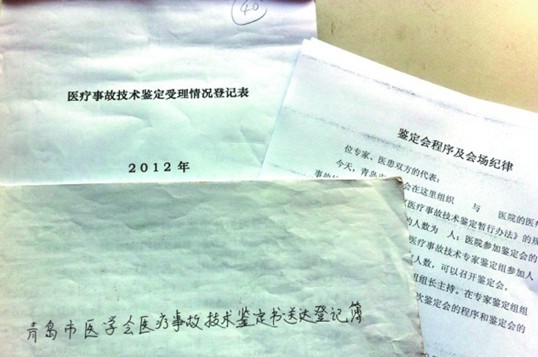 40
医疗事故技术鉴定受理情况登记表
2012年
鉴定会程序及会场纪律
位专家、医患双方的代表：
今天，青岛
会在这里组织 与 医院的医
《医疗事故技术鉴定暂行办法》的规
的人数为 人；医院参加鉴定会的
医疗事故技术专家鉴定组参加人
人数，可以召开鉴定会。
组组长主持。在专家鉴定组组
次鉴定会的程序和鉴定会的
青岛市医学会医疗事故技术鉴定书送达登记簿